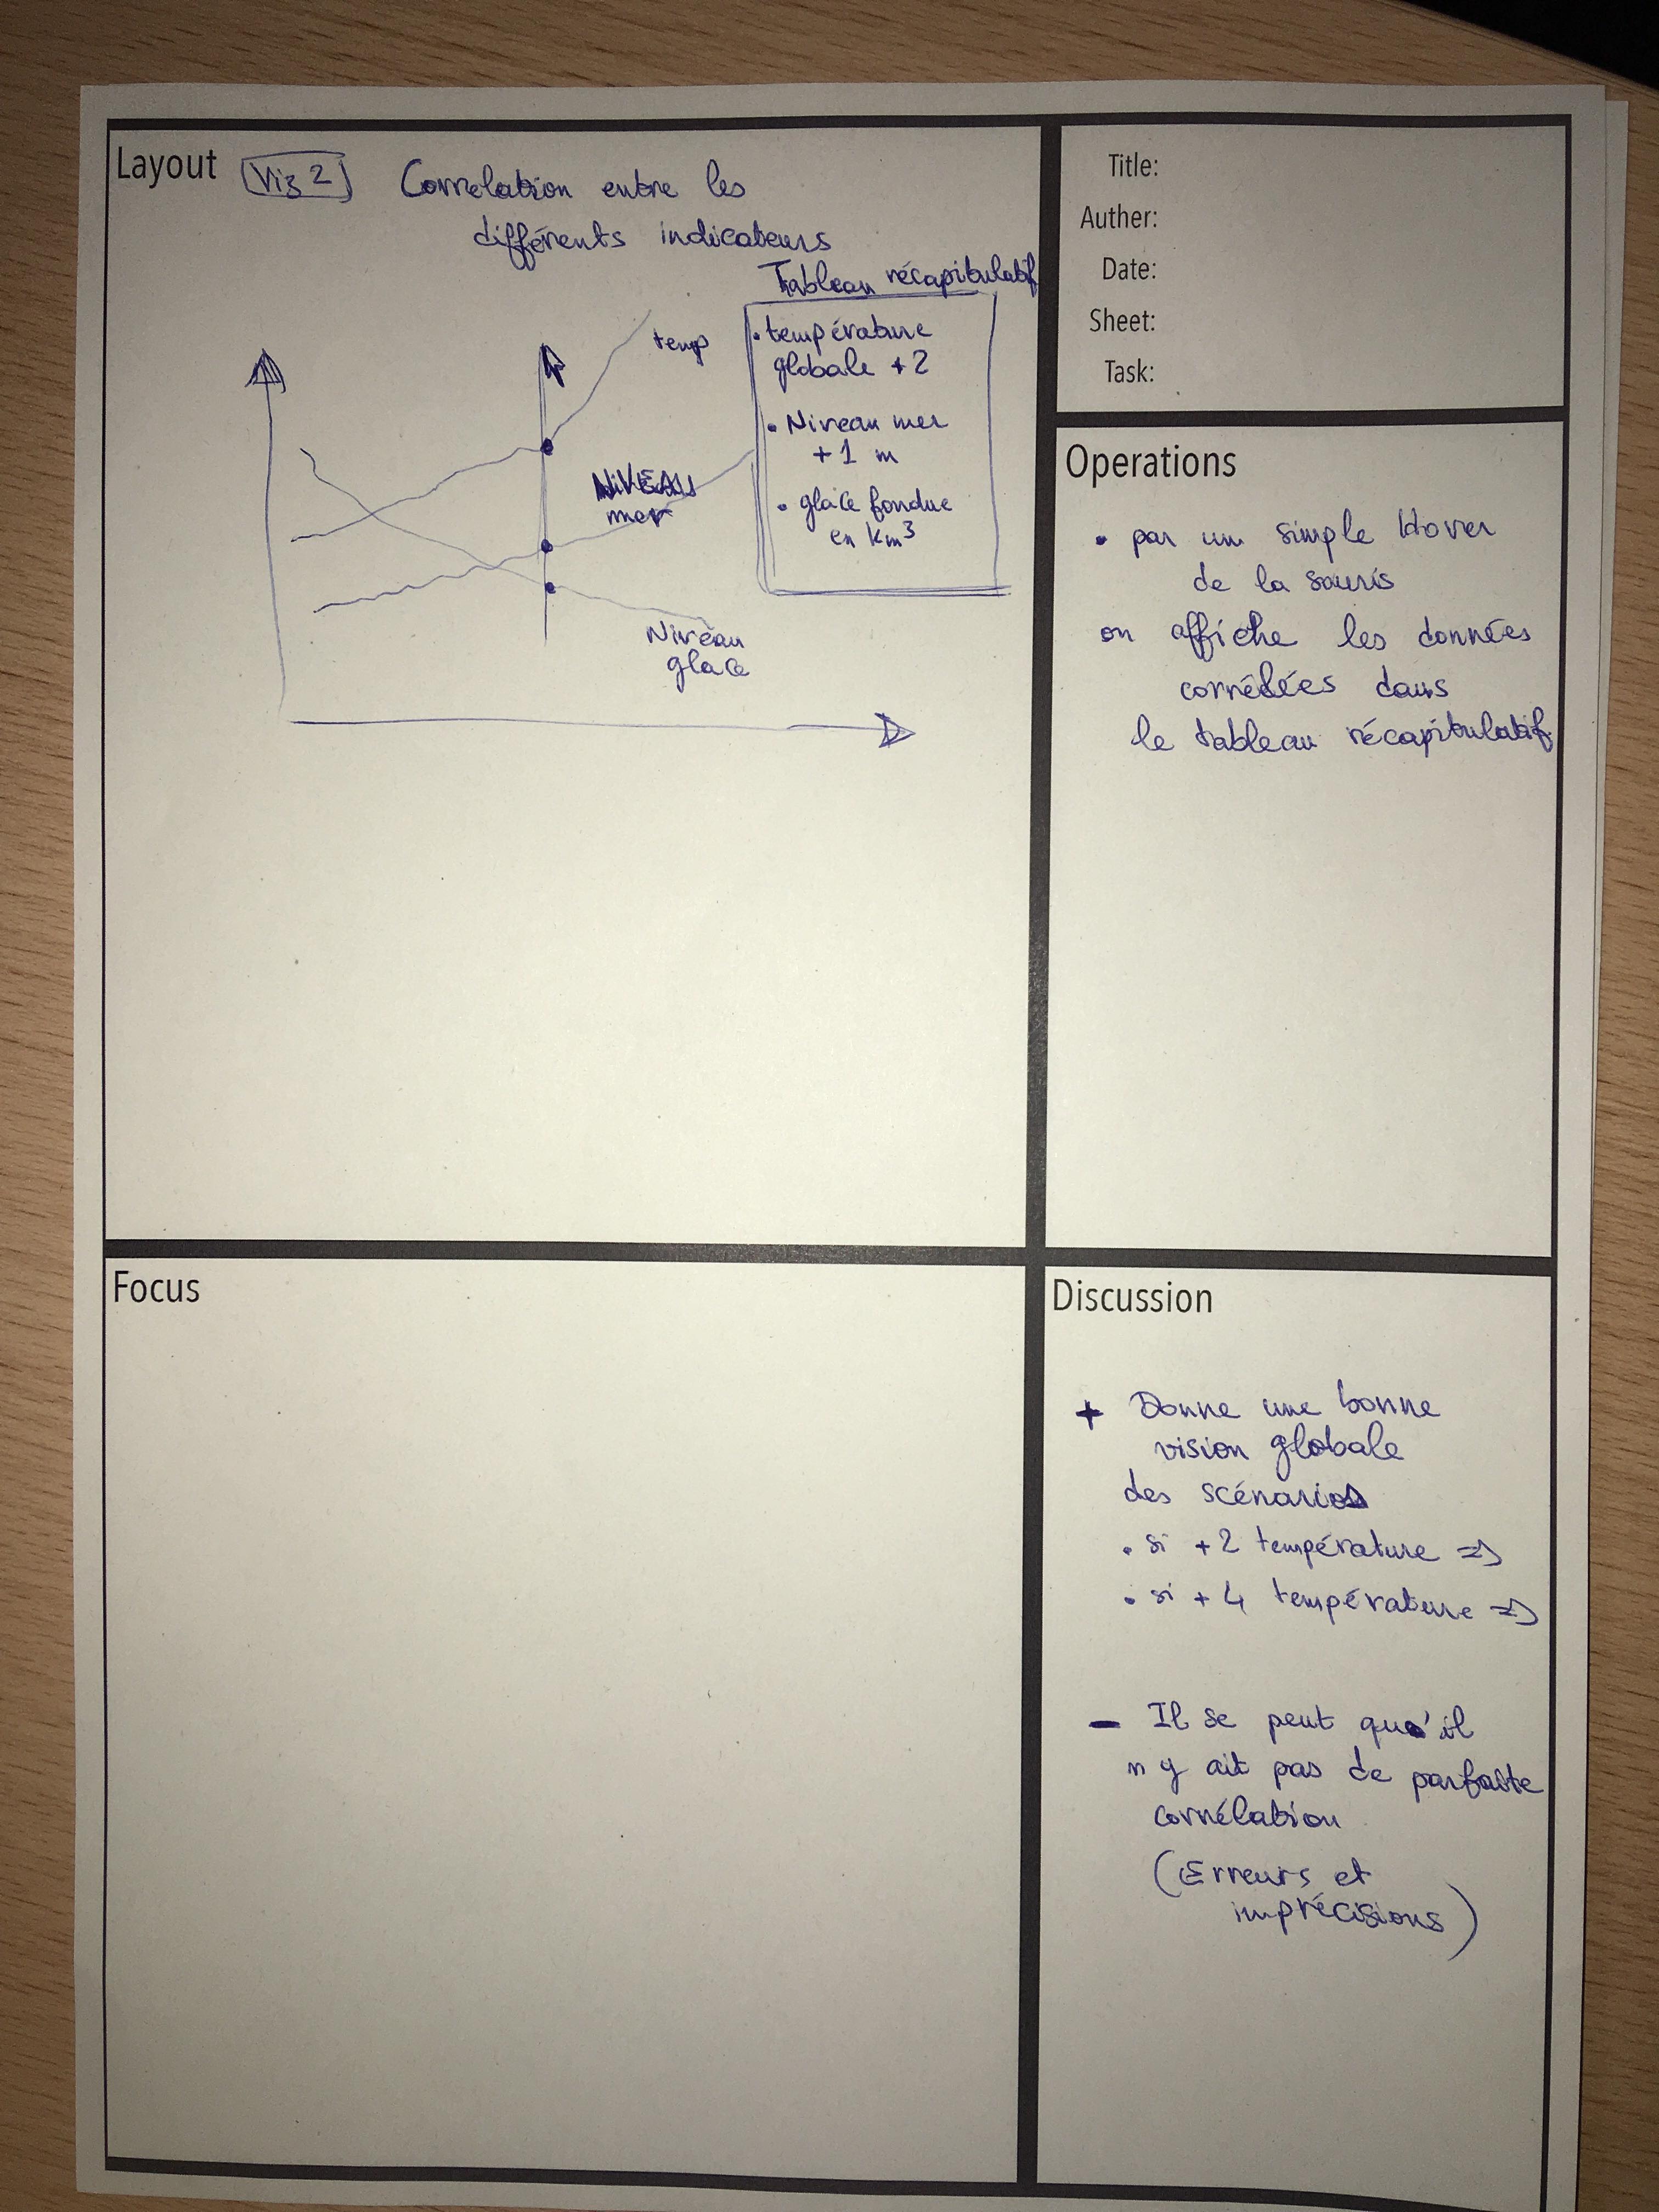 Layout
Viz 2
Correlation entre les
différents indicateurs
Tableau récapitulatif
temp
• température
globale +2
• Niveau mer
+ 1 m
• glace fondue
en km³
NIVEAU
mer
Niveau
glace
Title:
Auther:
Date:
Sheet:
Task:
Operations
• par un simple Hover
de la souris
on affiche les données
corrélées dans
le tableau récapitulatif
Focus
Discussion
+ Donne une bonne
vision globale
des scénarios
• si +2 température =>
• si +4 température =>
– Il se peut qu'il
n y ait pas de parfaite
corrélation
(Erreurs et
imprécisions)